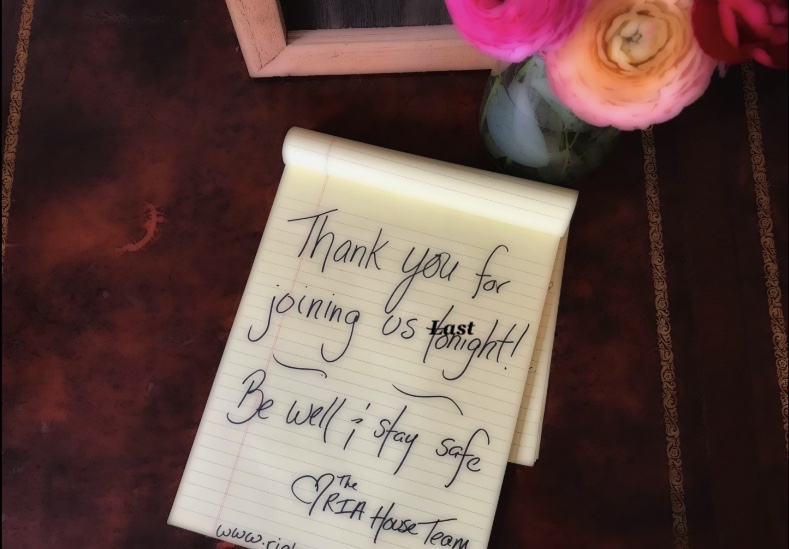 Thank you for
joining us Last tonight!
Be well & stay safe
The
RIA House Team
www.ria